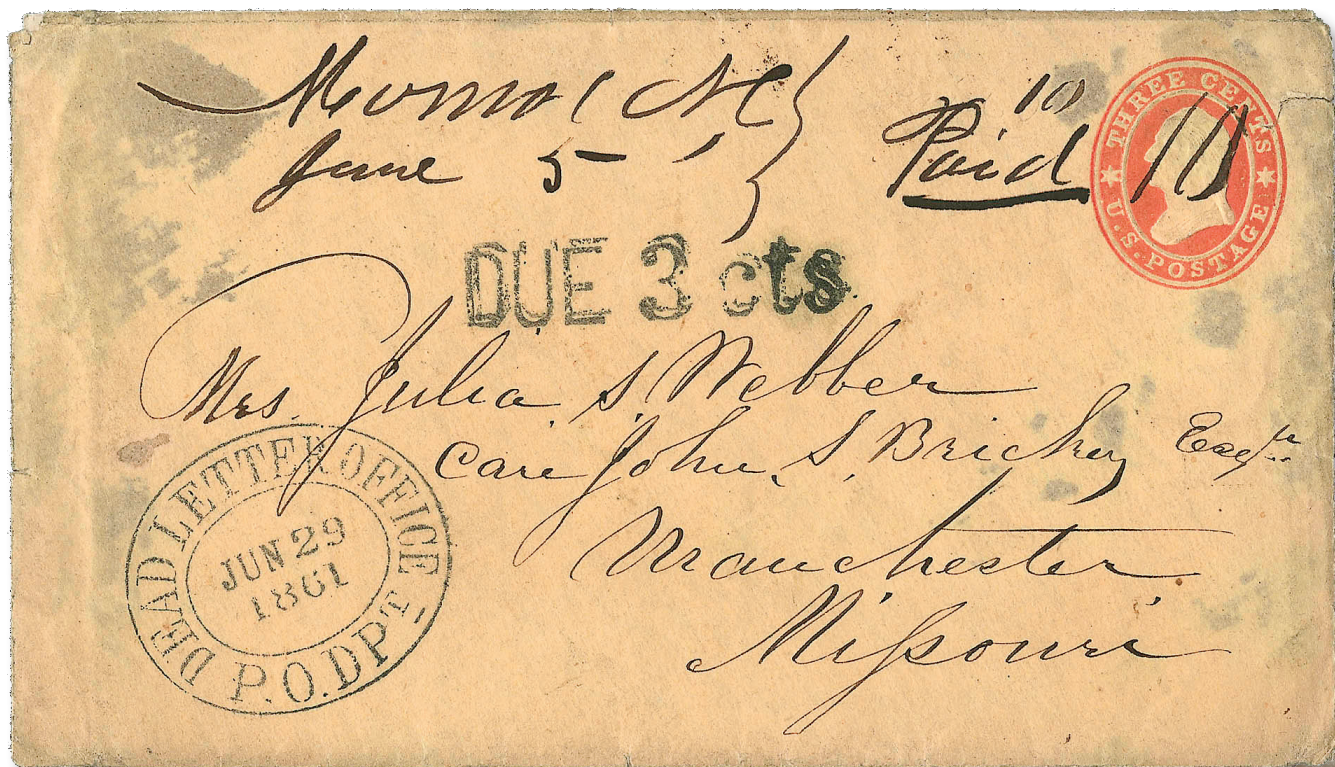 Monroe NC
June 5
10
Paid 10
THREE CENTS
U.S. POSTAGE
DUE 3 cts
Mrs. Julia S Webber
Care John S. Brickey Esqr
Manchester
Missouri
DEAD LETTER OFFICE
JUN 29
1861
P.O. DPT